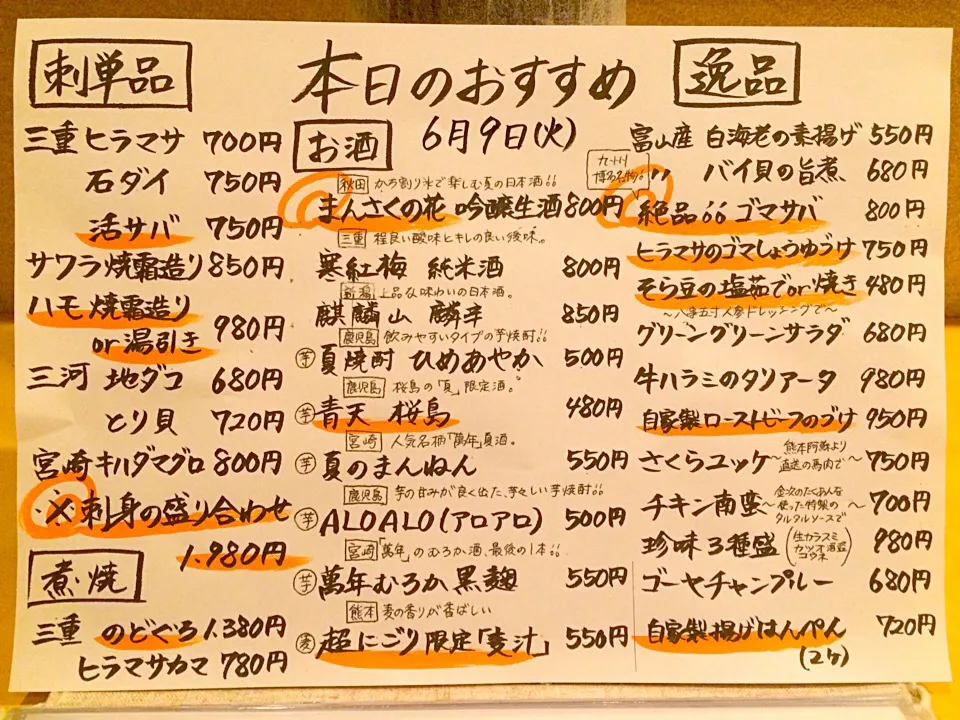 本日のおすすめ
6月9日(火)
刺単品
三重 ヒラマサ 700円
石ダイ 750円
活サバ 750円
サワラ焼霜造り 850円
ハモ焼霜造り
or湯引き 980円
三河 地ダコ 680円
とり貝 720円
宮崎キハダマグロ 800円
※刺身の盛り合わせ
1.980円
煮・焼
三重 のどぐろ 1.380円
ヒラマサカマ 780円
お酒
秋田 かち割り氷で楽しむ夏の日本酒!!
まんさくの花 吟醸生酒 800円
三重 程良い酸味とキレの良い後味。
寒紅梅 純米酒 800円
新潟 上品な味わいの日本酒。
麒麟山 麟辛 850円
鹿児島 飲みやすいタイプの芋焼酎!!
芋 夏焼酎 ひめあやか 500円
鹿児島 桜島の「夏」限定酒。
芋 青天 桜島 480円
宮崎 人気名柄「萬年」夏酒。
芋 夏のまんねん 550円
鹿児島 芋の甘みが良く出た、芋々しい芋焼酎!!
芋 ALOALO(アロアロ) 500円
宮崎 「萬年」のむろか酒、最後の1本!!
芋 萬年むろか 黒麹 550円
熊本 麦の香りが香ばしい
麦 超にごり限定「麦汁」 550円
逸品
富山産 白海老の素揚げ 550円
〃 バイ貝の旨煮 680円
九州
博多名物!
絶品!! ゴマサバ 800円
ヒラマサのゴマしょうゆづけ 750円
そら豆の塩茹でor焼き 480円
〜八事五寸人参ドレッシングで〜
グリーングリーンサラダ 680円
牛ハラミのタリアータ 980円
自家製ローストビーフのづけ 950円
さくらユッケ 〜熊本阿蘇より
直送の馬肉で〜 750円
チキン南蛮 〜金次のたくあんを
使った特製の
タルタルソースで〜 700円
珍味3種盛 (生カラスミ
カツオ酒盗
コウネ) 980円
ゴーヤチャンプルー 680円
自家製揚げはんぺん 720円
(2ヶ)